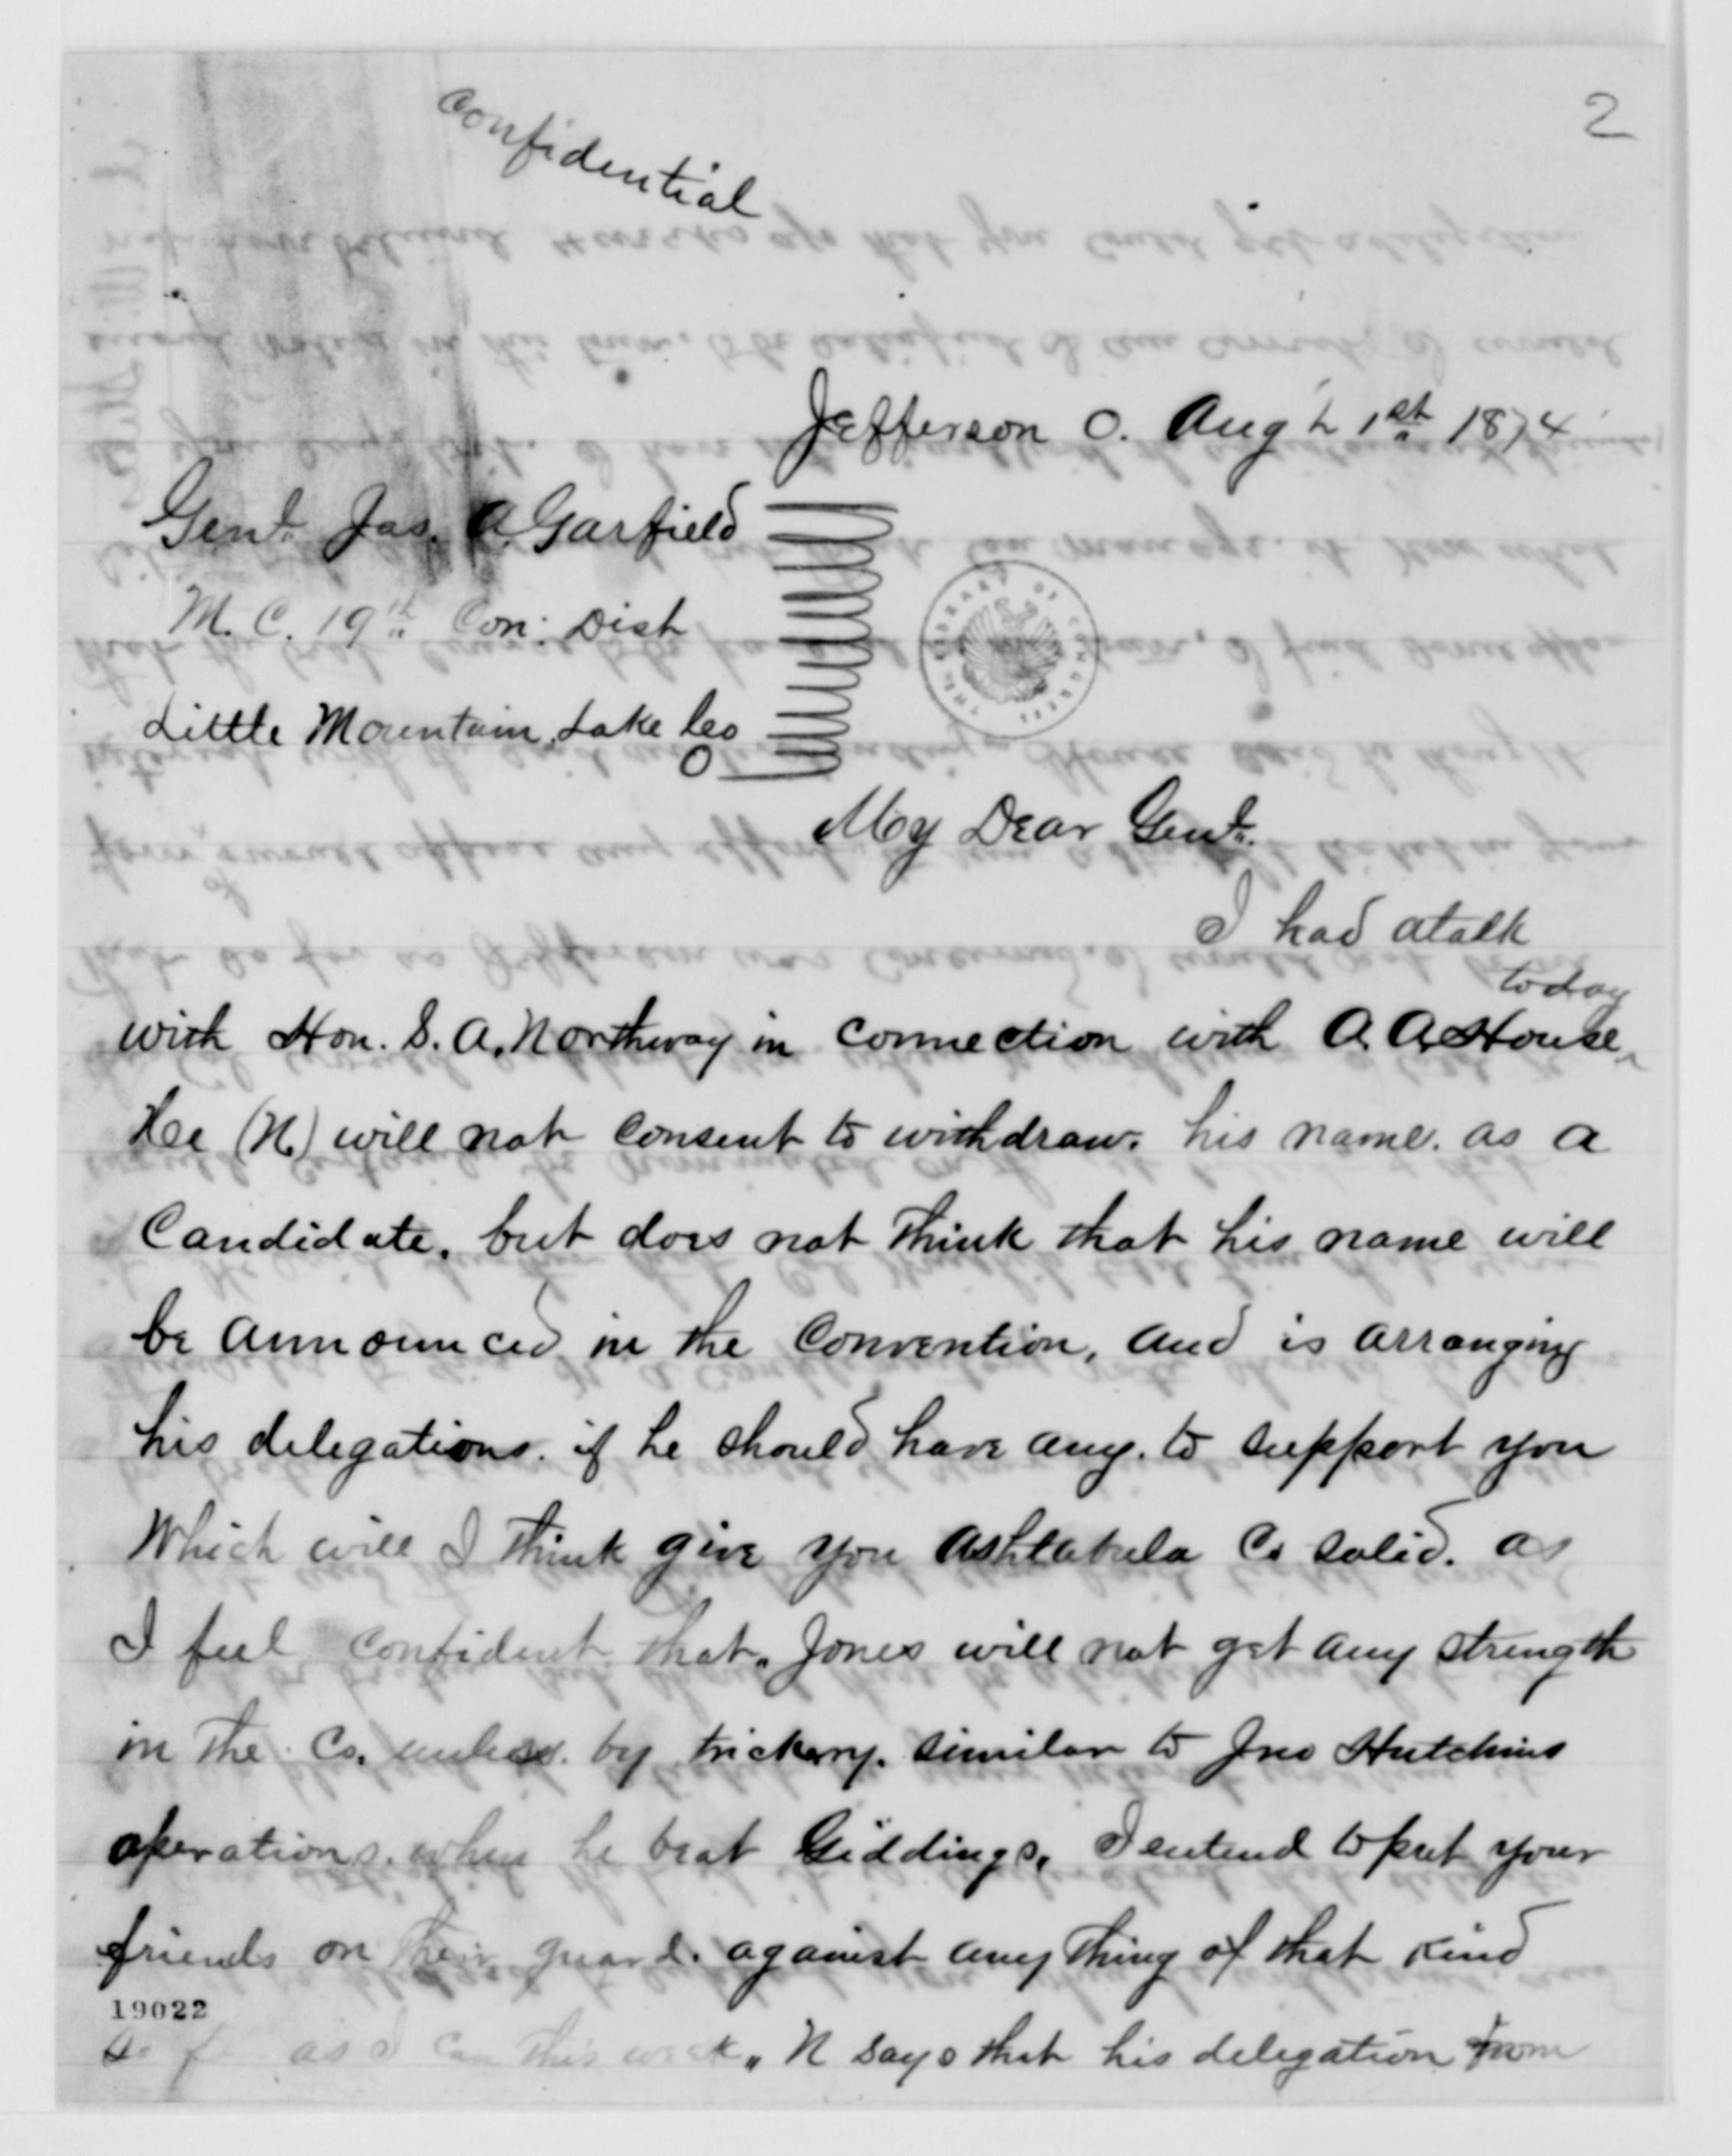 2
Confidential
Jefferson O. Augt 1st 1874
Genl. Jas. A. Garfield
M. C. 19th Con: Dist
THE LIBRARY OF CONGRESS
Little Mountain, Lake Co
O
My Dear Genl.
I had a talk
today
with Hon. S. A. Northway in connection with A. A. House
Hee (N) will not consent to withdraw. his name. as a
Candidate. but does not think that his name will
be announced in the Convention, and is arranging
his delegations. if he should have any. to support you
Which will I think give you Ashtabula Co solid. as
I feel confident that. Jones will not get any strength
in the Co. unless. by trickery. similar to Jno Hutchins
operations. when he beat Giddings. I entend to put your
friends on their guard. against any thing of that kind
19022
as I can this week. N says that his delegation from